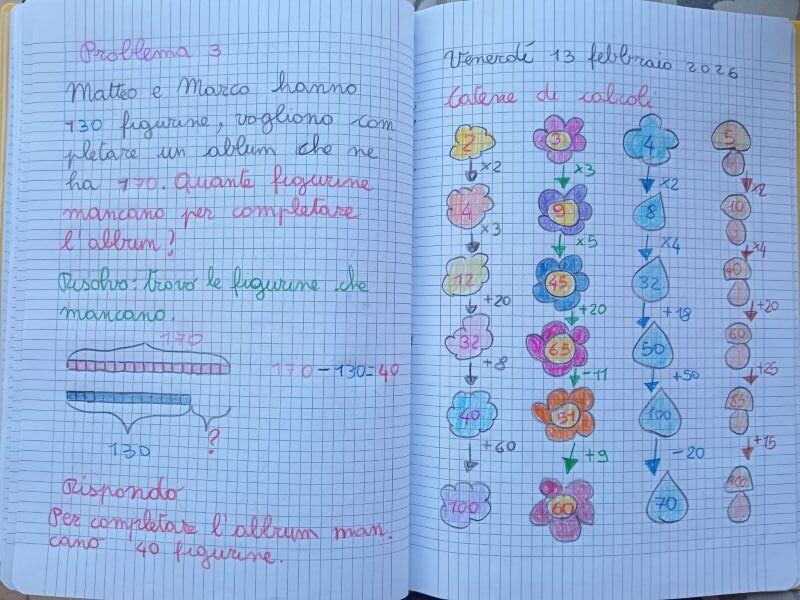 Problema 3
Matteo e Marco hanno
130 figurine, vogliono com
pletare un ablum che ne
ha 170. Quante figurine
mancano per completare
l'album?
Risolvo: trovo le figurine che
mancano.
170
170-130=40
130
?
Rispondo
Per completare l'album man.
cano 40 figurine.
Venerdì 13 febbraio 2026
Catene di calcoli
2 3 4 5
×2 ×3 ×2 ×2
4 9 8 10
×3 ×5 ×4 ×4
12 45 32 40
+20 +20 +18 +20
32 65 50 60
+8 -11 +50 +25
40 51 100 85
+60 +9 -20 +15
100 60 70 100